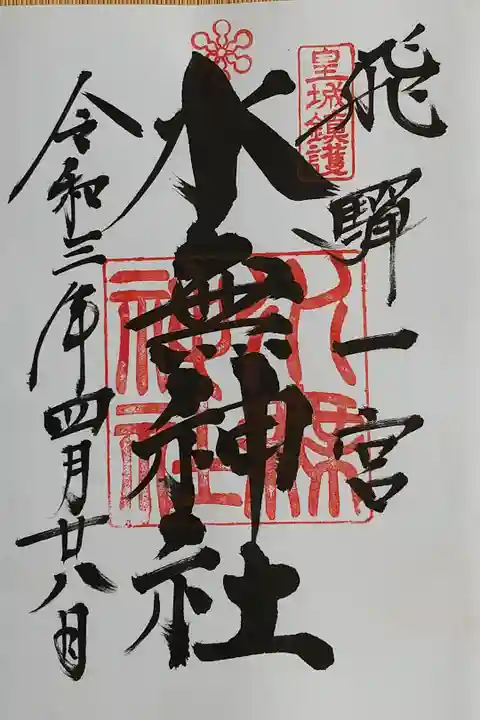 飛騨一宮
皇城鎮護
水無神社
令和三年四月廿八日